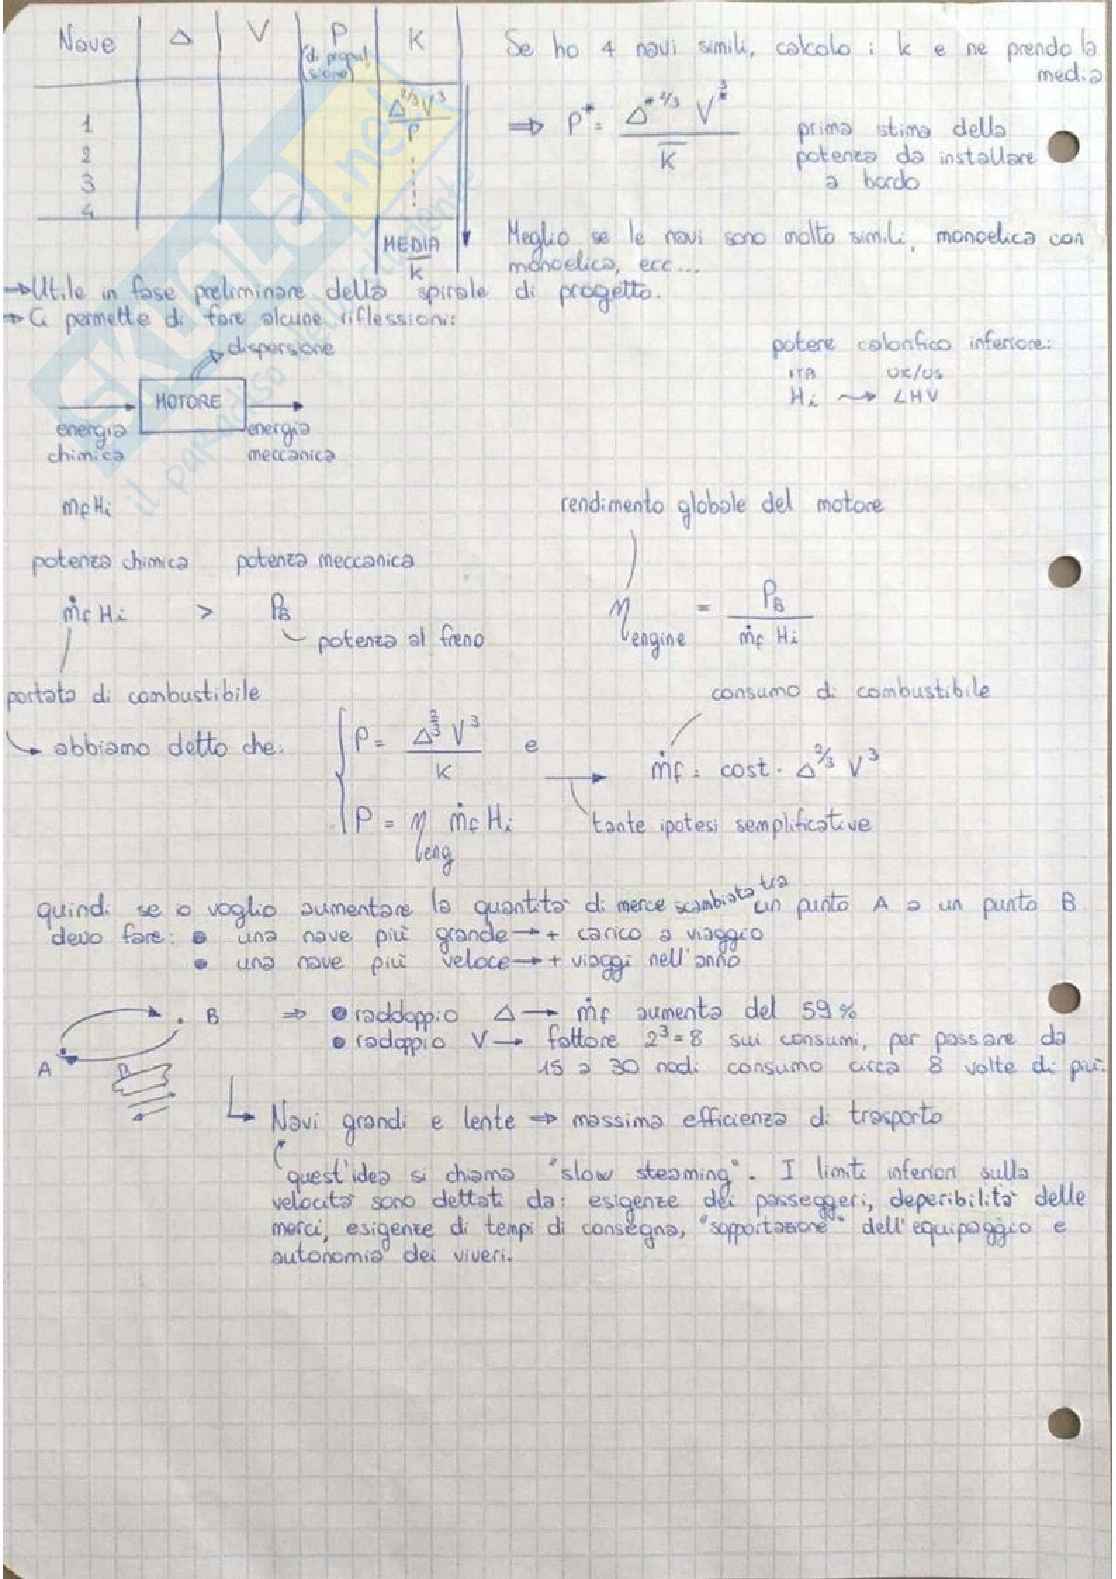 Nave | Δ | V | P (di propulsione) | K
1 | Δ^2/3 V^3 / P
2
3
4
MEDIA K̅
Se ho 4 navi simili, calcolo i k e ne prendo la
media
⇒ P* = Δ*^2/3 V^3 / K̅
prima stima della
potenza da installare
a bordo
Meglio se le navi sono molto simili, monoelica con
monoelica, ecc...
→ Utile in fase preliminare della spirale di progetto.
→ Ci permette di fare alcune riflessioni:
dispersione
MOTORE
energia
chimica
energia
meccanica
potere calorifico inferiore:
ITA UK/US
Hi ⇝ LHV
mf Hi
rendimento globale del motore
potenza chimica potenza meccanica
ṁf Hi > PB
potenza al freno
η engine = PB / ṁf Hi
portata di combustibile
consumo di combustibile
abbiamo detto che:
P = Δ^2/3 V^3 / K e
P = η eng ṁf Hi
→ ṁf = cost · Δ^2/3 V^3
tante ipotesi semplificative
quindi se io voglio aumentare la quantità di merce scambiata tra un punto A a un punto B
devo fare: • una nave più grande → + carico a viaggio
• una nave più veloce → + viaggi nell'anno
A B
⇒ • raddoppio Δ → ṁf aumenta del 59%
• radoppio V → fattore 2^3=8 sui consumi, per passare da
15 a 30 nodi consumo circa 8 volte di più.
Navi grandi e lente ⇒ massima efficienza di trasporto
quest'idea si chiama "slow steaming". I limiti inferiori sulla
velocità sono dettati da: esigenze dei passeggeri, deperibilità delle
merci, esigenze di tempi di consegna, "sopportazione" dell'equipaggio e
autonomia dei viveri.